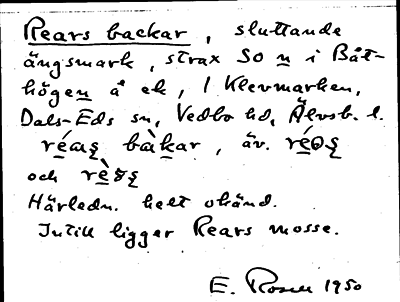 Rears backar, sluttande
ängsmark, strax SO n i Båt-
högen å ek, 1 Klevmarken,
Dals-Eds sn, Vedbo hd, Älvsb. l.
bàkar, äv.
och
Härledn. helt okänd.
Intill ligger Rears mosse.
E. Rosell 1950